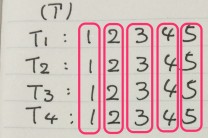 (T)
T1 : 1 2 3 4 5
T2 : 1 2 3 4 5
T3 : 1 2 3 4 5
T4 : 1 2 3 4 5